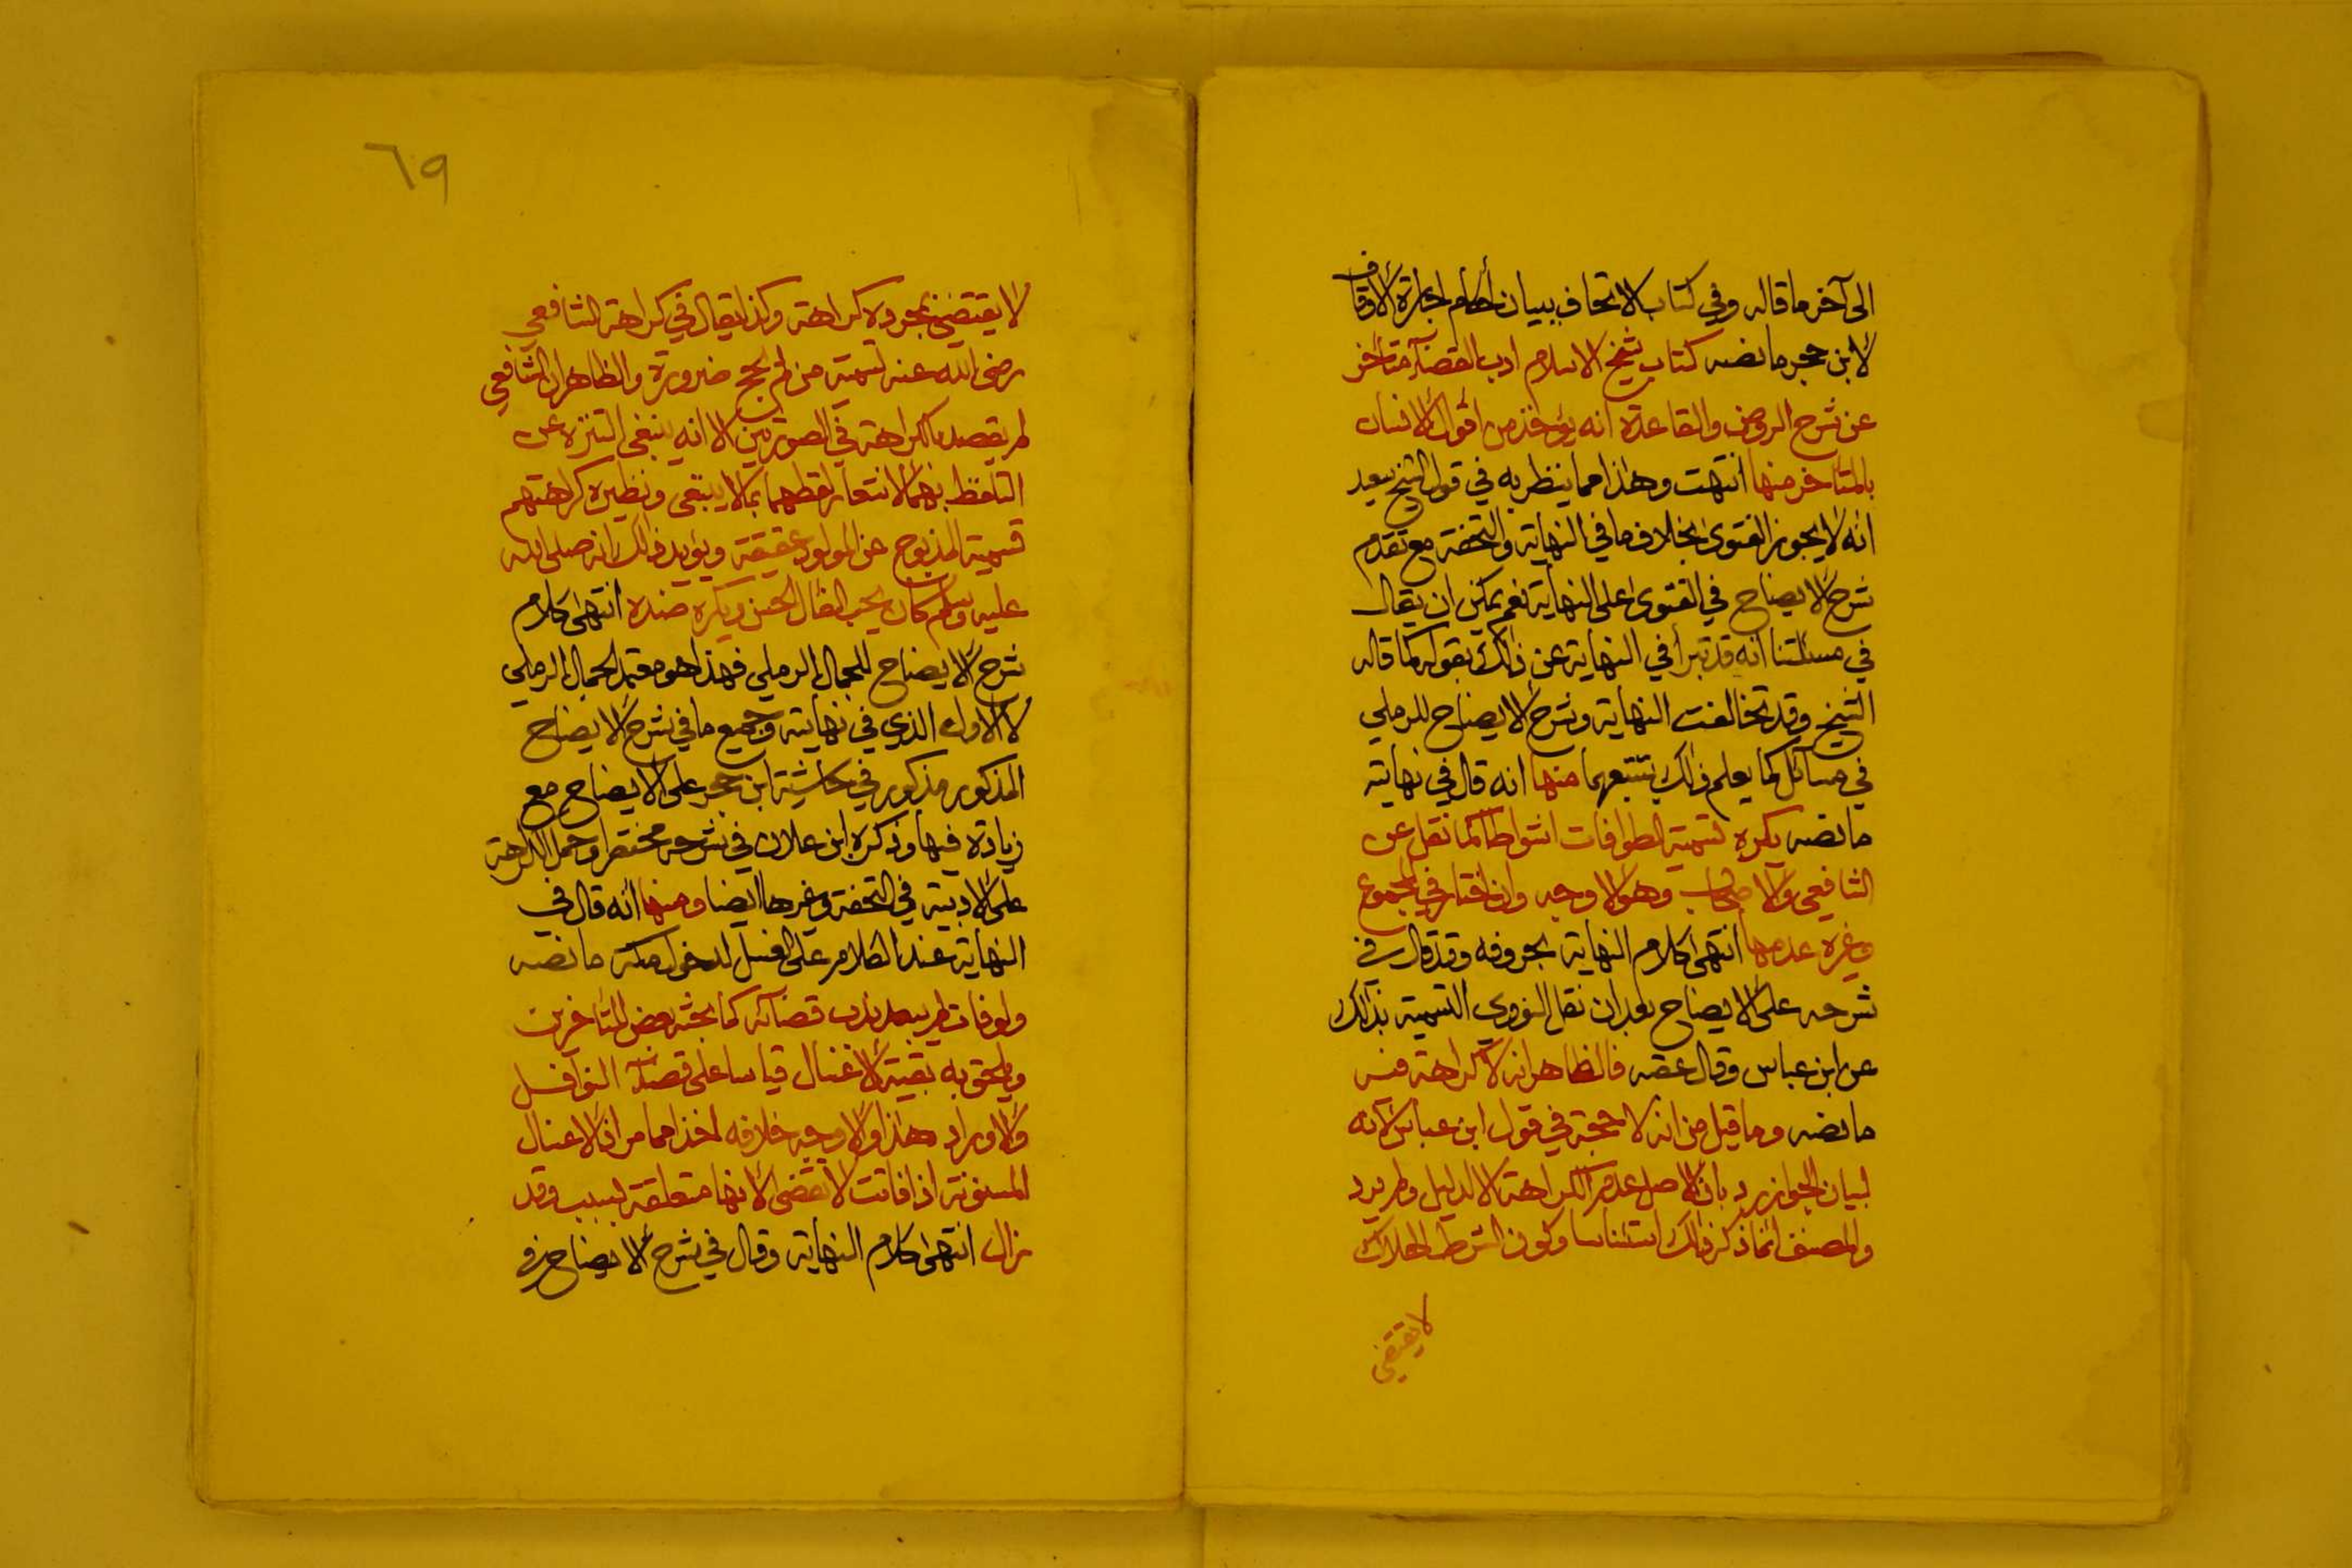 الى آخر ما قاله وفي كتاب الاتحاف ببيان أحكام اجارة الاوقاف
لابن حجر ما نصه كتاب شيخ الاسلام ادب القضآء متأخر
عن شرح الروض والقاعدة انه يؤخذ من أقوال الانسان
بالمتأخر منها انتهت وهذا مما ينظر به في قول الشيخ سعيد
انه لا يجوز الفتوى بخلاف ما في النهاية والتحفة مع تقدم
شرح الايضاح في الفتوى على النهاية نعم يمكن ان يقال
في مسئلتنا انه قد تبرأ في النهاية عن ذلك بقوله كما قاله
الشيخ وقد تخالفت النهاية وشرح الايضاح للرملي
في مسائل كما يعلم ذلك بتتبعهما منها انه قال في نهايته
ما نصه يكره تسمية الطوافات اشواطا كما نقل عن
الشافعي والاصحاب وهو الاوجه وان اختار في المجموع
وغيره عدمها انتهى كلام النهاية بحروفه وقد قال في
شرحه على الايضاح بعد ان نقل النووي التسمية بذلك
عن ابن عباس وقال عقبه فالظاهر انه لا كراهة فيه
ما نصه وما قيل من انه لا حجة في قول ابن عباس لانه
لبيان الجواز يرد بان الاصل عدم الكراهة الا لدليل ولم يرد
والمصنف انما ذكر ذلك استئناسا وكون الشرط الهلاك
لا يقتضي
٦٩
لا يقتضي بمجرده كراهته وكذا يقال في كراهة الشافعي
رضي الله عنه تسمية من لم يحج ضرورة والظاهر ان الشافعي
لم يقصد بالكراهة في الصورتين الا انه ينبغي التنزه عن
التلفظ بهما لاشعار لفظهما بما لا ينبغي ونظيره كراهتهم
تسمية المذبوح عن المولود عقيقة ويؤيد ذلك انه صلى الله
عليه وسلم كان يحب الفال الحسن ويكره ضده انتهى كلام
شرح الايضاح للجمال الرملي فهذا هو معتمد الجمال الرملي
لا الاول الذي في نهايته وجميع ما في شرح الايضاح
المذكور مذكور في حاشية ابن حجر على الايضاح مع
زيادة فيها وذكره ابن علان في شرحه مختصرا وحمل الكراهة
على الادبية في التحفة وغيرها ايضا ومنها انه قال في
النهاية عند الكلام على الغسل لدخول مكة ما نصه
ولو فات لم يبعد ندب قضآئه كما بحثه بعض المتأخرين
ويلحق به بقية الاغسال قياسا على قضآء النوافل
والاوراد هذا والاوجه خلافه اخذا مما مر ان الاغسال
المسنونة اذا فاتت لا تقضى لانها متعلقة بسبب وقد
زال انتهى كلام النهاية وقال في شرح الايضاح في